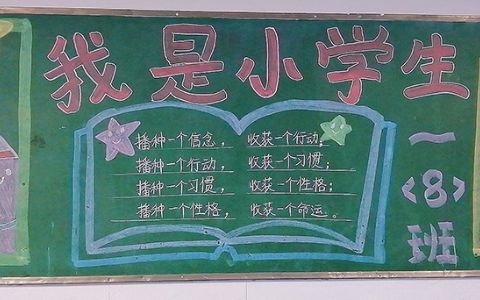 我是小学生
播种一个信念，收获一个行动；
播种一个行动，收获一个习惯；
播种一个习惯，收获一个性格；
播种一个性格，收获一个命运。
一
<8>
班